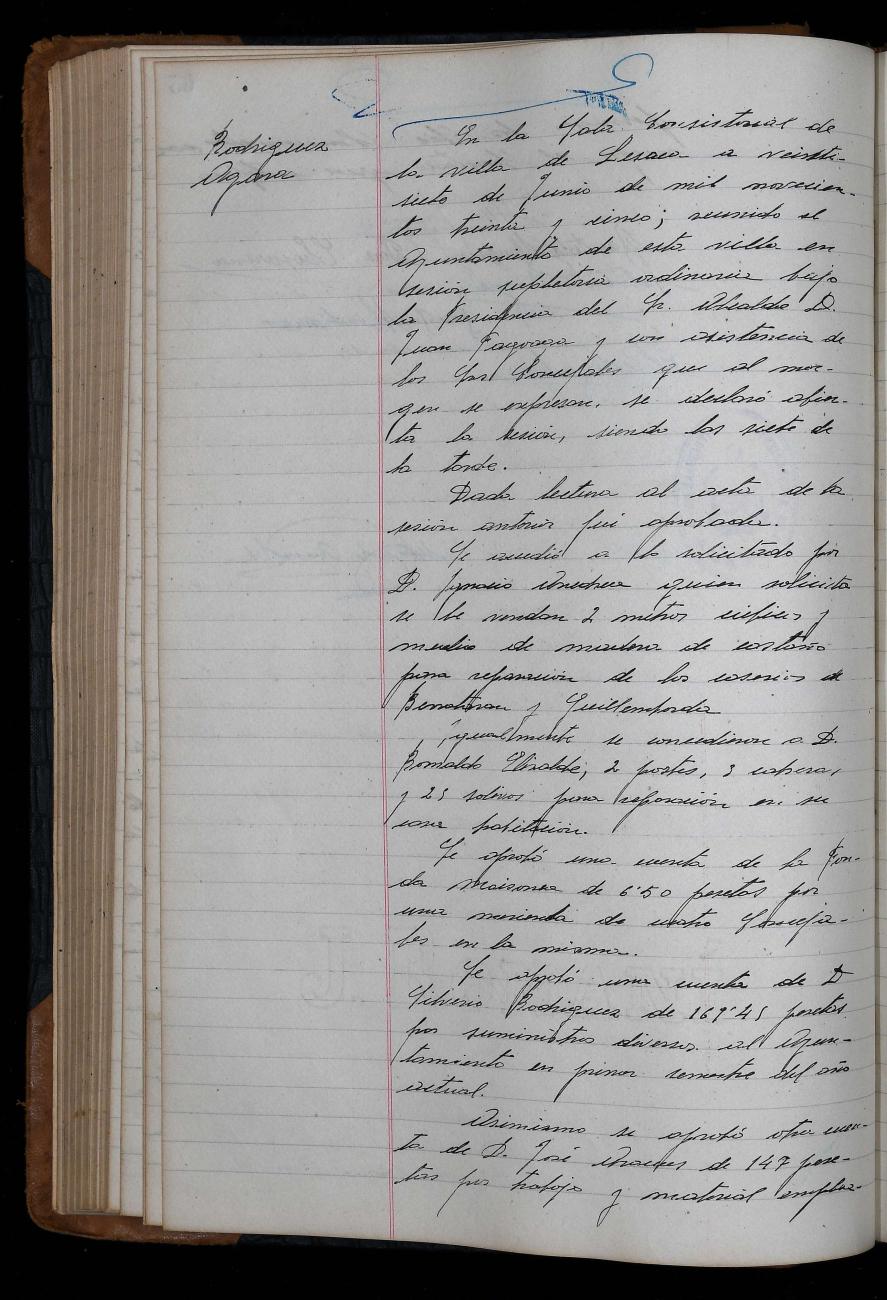 Rodriguez
Agara
En la Sala Consistorial de
la villa de Lesaca a veinti-
siete de Junio de mil novecien-
tos treinta y cinco; reunido el
Ayuntamiento de esta villa en
sesión supletoria ordinaria bajo
la Presidencia del Sr. Alcalde D.
Juan Fagoaga y con asistencia de
los Srs Concejales que al mar-
gen se expresan, se declaró abier-
ta la sesión, siendo las siete de
la tarde.
Dada lectura al acta de la
sesión anterior fué aprobada.
Se accedió a lo solicitado por
D. Ignacio quien solicita
se le vendan 2 metros cúbicos y
medio de madera de castaño
para reparación de los caserios de
y
Igualmente se concedieron a D.
Romaldo Elizalde, 2 postes, 3
y 25 solivos para reparación en su
casa
Se aprobó una cuenta de la Fon-
da de 6'50 pesetas por
una merienda de cuatro Conceja-
les en la misma.
Se aprobó una cuenta de D
Silverio Rodriguez de 169'45 pesetas
por suministros diversos al Ayun-
tamiento en primer semestre del año
actual.
Asimismo se aprobó otra cuen-
ta de D. José de 147 pese-
tas por trabajo y material emplea-